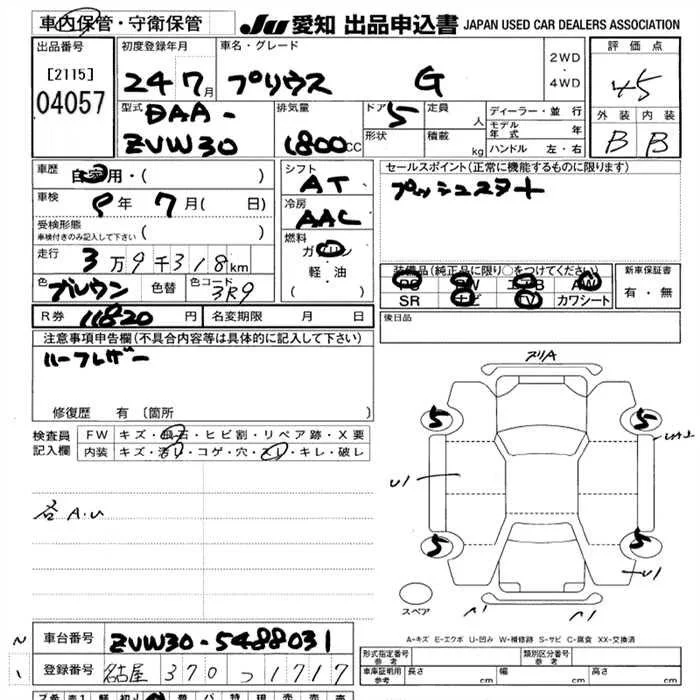 車内保管・守衛保管
JU 愛知 出品申込書 JAPAN USED CAR DEALERS ASSOCIATION
出品番号 初度登録年月 車名・グレード 2WD・4WD 評価点
[2115]
04057
24 7月 プリウス G 45
型式 DAA-ZVW30
排気量 1800CC
ドア 5
形状
定員 人
積載 kg
ディーラー・並行
モデル年式 年
ハンドル 左・右
外装 内装
B B
車歴 自家用・( )
車検 9年 7月( 日)
受検形態
車検付きのみ記入して下さい ( )
走行 3万9千318km
色 ブルウン 色替 色コード 3R9
シフト AT
冷房 AAC
燃料
ガソリン
軽・油
( )
セールスポイント(正常に機能するものに限ります)
プッシュスタート
装備品(純正品に限り○をつけてください) 新車保証書
PS PW エアB AW 有・無
SR ナビ TV カワシート
R券 11820円 名変期限 月 日
後日品
注意事項申告欄(不具合内容等は具体的に記入して下さい)
ハーフレザー
修復歴 有 〔箇所
検査員記入欄
FW キズ・飛石・ヒビ割・リペア跡・X要
内装 キズ・汚レ・コゲ・穴・スレ・キレ・破レ
各A.U
5 5
U1
5 5
U1
スペア
A-キズ E-エクボ U-凹み W-補修跡 S-サビ C-腐食 XX-交換済
車台番号 ZVW30-5488031
登録番号 名古屋 370 つ 1717
形式指定番号 参考 類別区分番号 参考
車庫証明用 参考 長さ cm 幅 cm 高さ cm